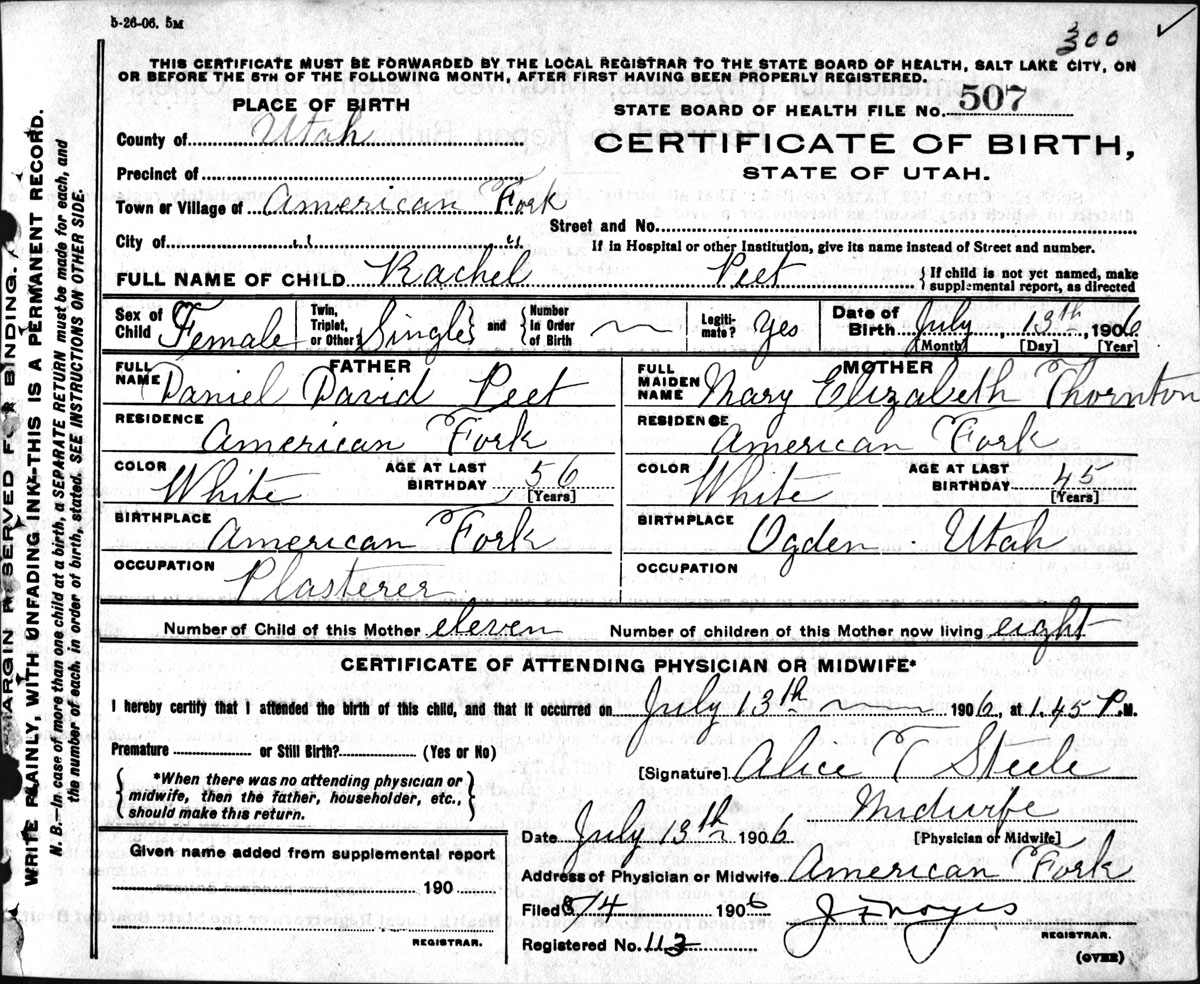 5-26-06. 5M
300 ✓
THIS CERTIFICATE MUST BE FORWARDED BY THE LOCAL REGISTRAR TO THE STATE BOARD OF HEALTH, SALT LAKE CITY, ON
OR BEFORE THE 5TH OF THE FOLLOWING MONTH, AFTER FIRST HAVING BEEN PROPERLY REGISTERED.
MARGIN RESERVED FOR BINDING.
WRITE PLAINLY, WITH UNFADING INK—THIS IS A PERMANENT RECORD.
N. B.—In case of more than one child at a birth, a SEPARATE RETURN must be made for each, and
the number of each, in order of birth, stated. SEE INSTRUCTIONS ON OTHER SIDE.
PLACE OF BIRTH
STATE BOARD OF HEALTH FILE No. 507
County of Utah
CERTIFICATE OF BIRTH,
STATE OF UTAH.
Precinct of
Town or Village of American Fork
Street and No.
City of " "
If in Hospital or other Institution, give its name instead of Street and number.
FULL NAME OF CHILD Rachel Peet { If child is not yet named, make
supplemental report, as directed
Sex of Child Female Twin, Triplet, or Other? Single } and { Number In Order of Birth — Legiti-mate? Yes Date of Birth July 13th, 1906
[Month] [Day] [Year]
FATHER MOTHER
FULL NAME Daniel David Peet FULL MAIDEN NAME Mary Elizabeth Thornton
RESIDENCE American Fork RESIDENCE American Fork
COLOR White AGE AT LAST BIRTHDAY 56 [Years] COLOR White AGE AT LAST BIRTHDAY 45 [Years]
BIRTHPLACE American Fork BIRTHPLACE Ogden Utah
OCCUPATION Plasterer OCCUPATION
Number of Child of this Mother eleven Number of children of this Mother now living eight
CERTIFICATE OF ATTENDING PHYSICIAN OR MIDWIFE*
I hereby certify that I attended the birth of this child, and that it occurred on July 13th 1906, at 1.45 P.M.
Premature or Still Birth? (Yes or No)
[Signature] Alice T Steele
{ *When there was no attending physician or
midwife, then the father, householder, etc.,
should make this return. }
Midwife
Date July 13th 1906 [Physician or Midwife]
Given name added from supplemental report
Address of Physician or Midwife American Fork
190
Filed 8/4 1906 J F Noyes
REGISTRAR.
REGISTRAR.
Registered No. 113
(OVER)